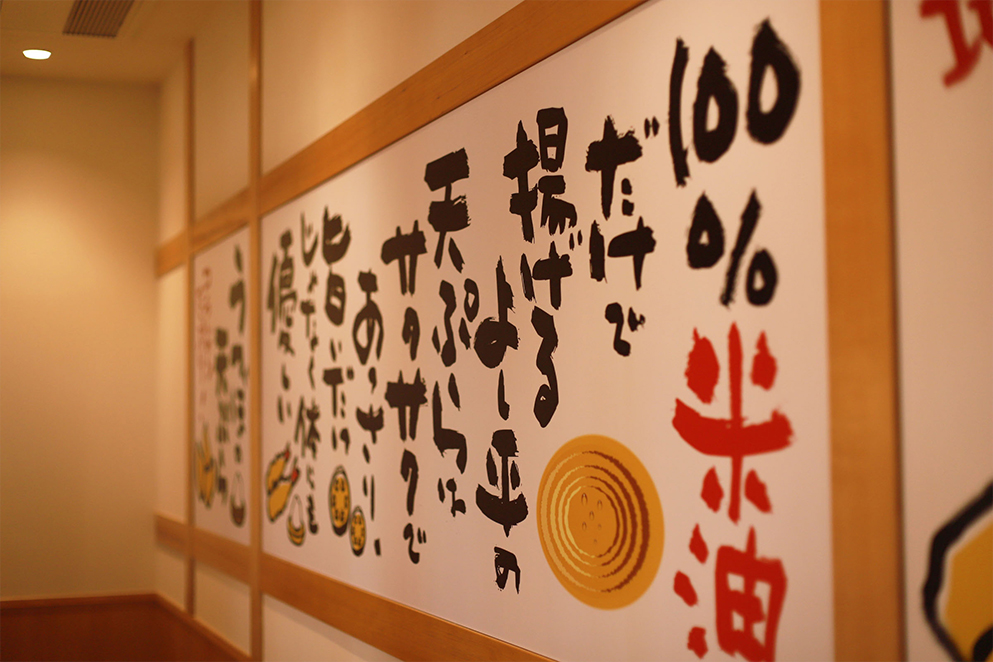 100%米油
だけで
揚げる
よし平の
天ぷらは
サクサクで
あっさり、
旨いだっ
じゃなく体にも
優しい